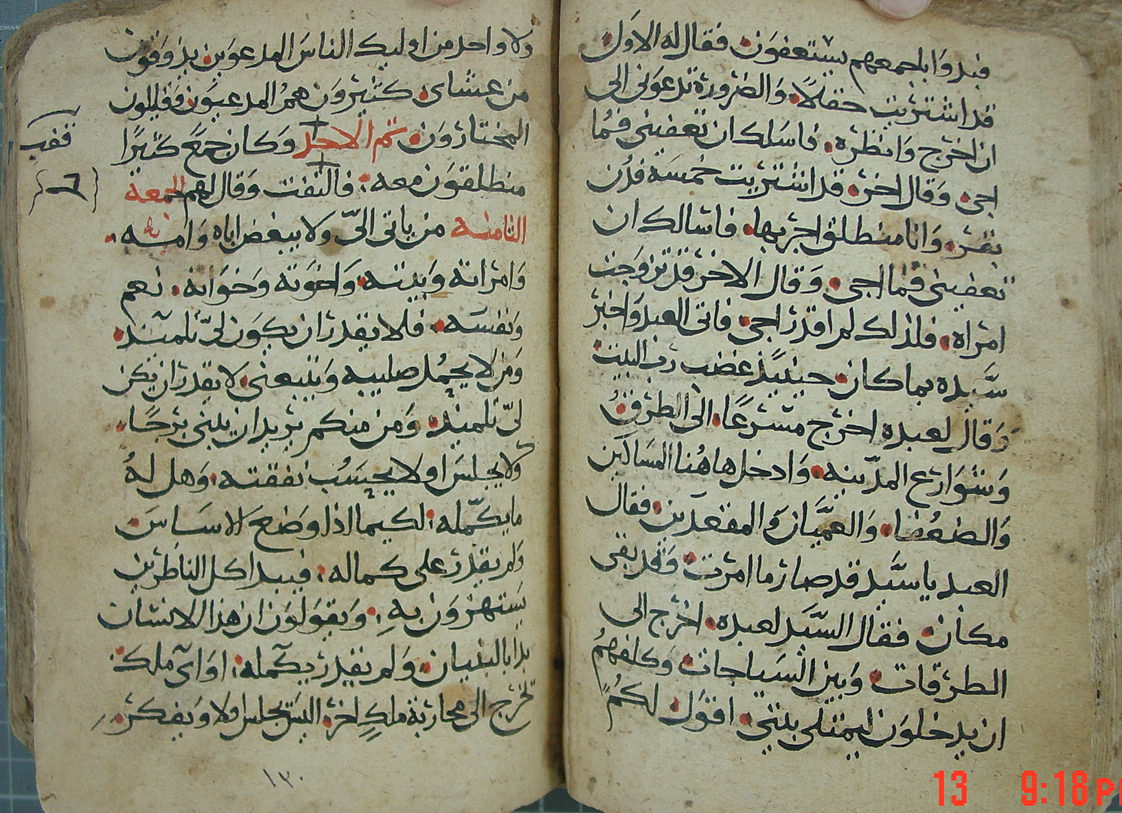 فبدوا باجمعهم يستعفون فقال له الاول
قد اشتريت حقلاً والضرورة تدعوني الى
ان اخرج وانظره فاسلك ان تعفيني فما
اجي وقال اخر قد اشتريت خمسة فدن
بقر وانا منطلق اجربها فاسالك ان
تعفيني فما اجي وقال الاخر قد تزوجت
امراه فلذلك لم اقدر اجي فاتى العبد واخبر
سيده بما كان حينيذ غضب رب البيت
وقال لعبده اخرج مسرعًا الى الطرق
وشوارع المدينه وادخل هاهنا المساكين
والضعفا والعميان والمقعدين فقال
العبد ياسيد قد صار ما امرت وقد بقى
مكان فقال السيد لعبده اخرج الى
الطرقات وبين السياجات وكلفهم
ان يدخلون ليمتلي بيتي اقول لكم
ولا واحد من اوليك الناس المدعوين يذوقون
من عشاي كثيرون هم المدعيون وقليلون
المختارون تم الاحد وكان جمع كثيرًا
منطلقون معه فالتفت وقال لهم الجمعه
الثامنه من ياتى اليّ ولا يبغض اباه وامه
وامراته وبنيه واخوته وخواته نعم
ونفسه فلا يقدر ان يكون لي تلميذ
ومن لا يحمل صليبه ويتبعني لا يقدر ان يكن
لي تلميذ ومن منكم يريد ان يبني برجًا
ولا يجلس اولا يحسب نفقته وهل له
ما يكمله لكيما اذا وضع لاساس
ولم يقدر على كماله فيبدا كل الناظرين
يستهزون به ويقولون ان هذا الانسان
بدا بالبنيان ولم يقدر يكمله او اي ملك
تخرج الى محاربة ملك اخر اليس يجلس اولا ويفكر
١٣٠
13 9:18 P